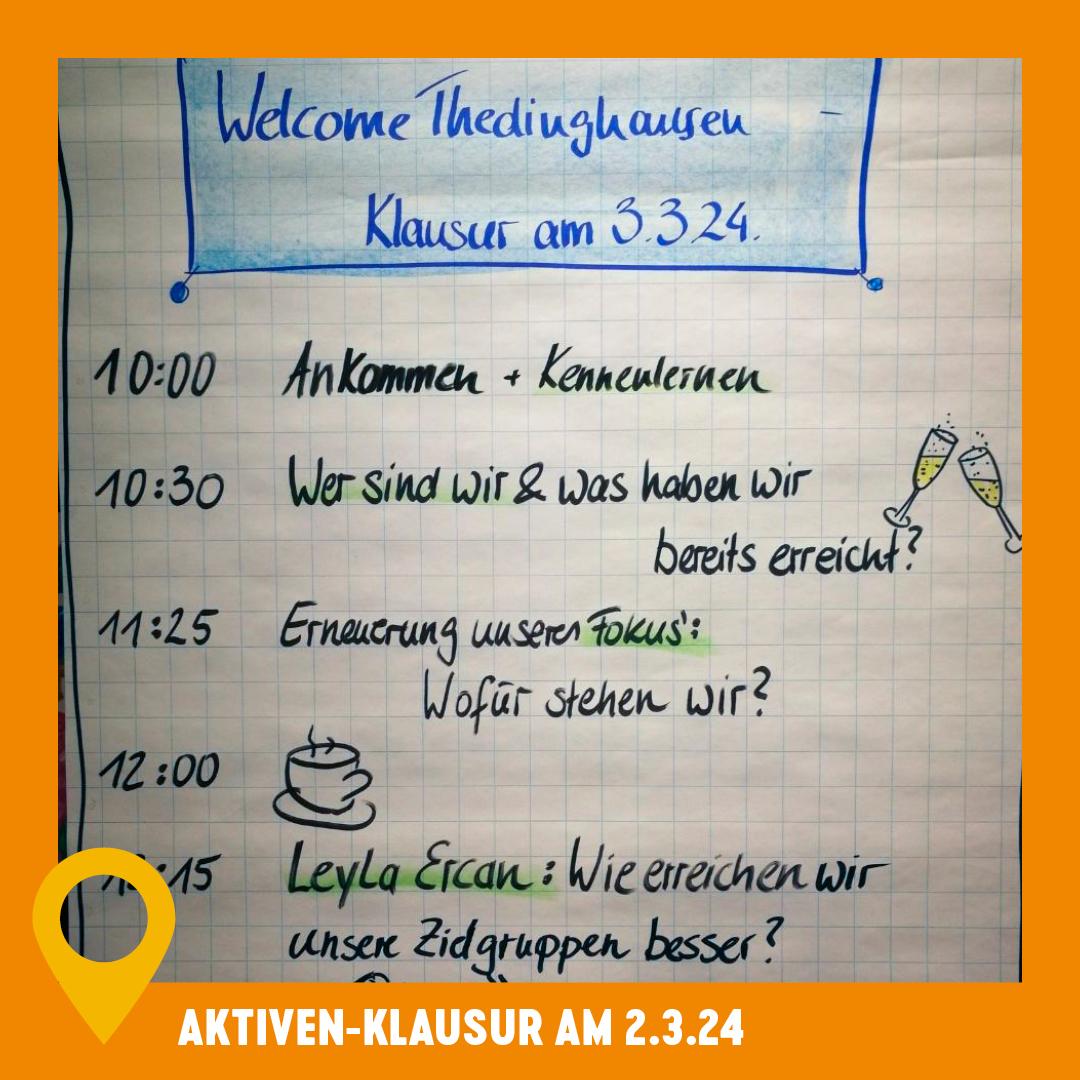 Welcome Thedinghausen -
Klausur am 3.3.24.
10:00 Ankommen + Kennenlernen
10:30 Wer sind wir & was haben wir
bereits erreicht?
11:25 Erneuerung unseres Fokus':
Wofür stehen wir?
12:00
:15 Leyla Ercan: Wie erreichen wir
unsere Zielgruppen besser?
AKTIVEN-KLAUSUR AM 2.3.24